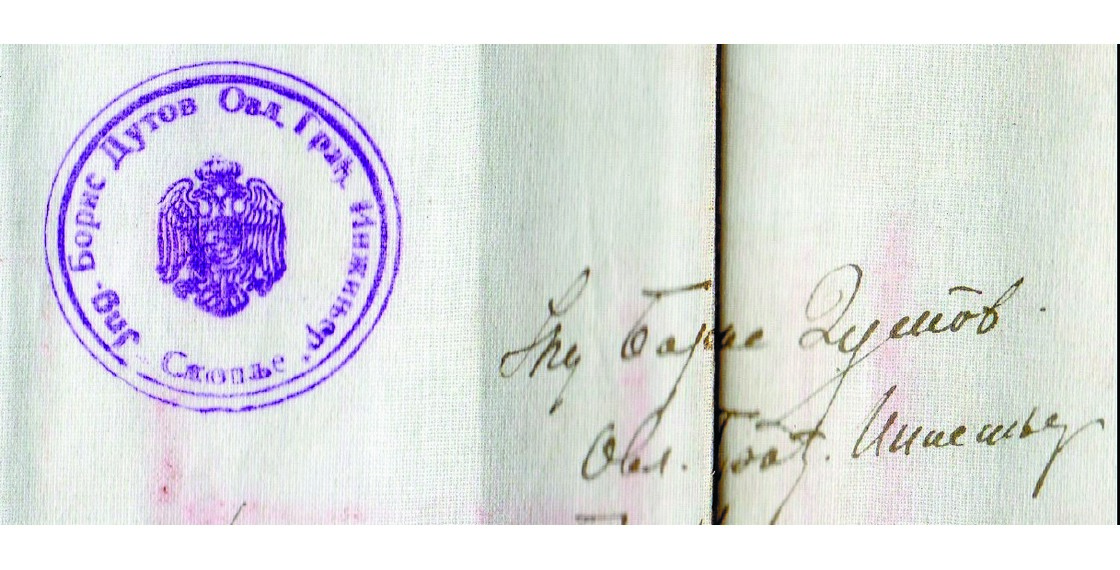 Јng. Борис Дутов Овл. Грађ. Инжињер,
Скопље
Инг Борис Дутов.
Овл. Грађ. Инжењер